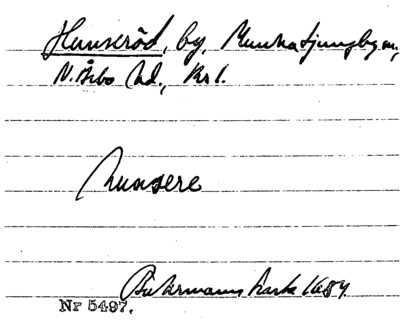 Hunseröd, by, Munka Ljungby sn,
N. Åsbo hd, Krl.
hunsere
Buhrmanns karta 1684.
Nr 5497.